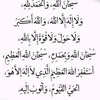 سُبْحَانَ اللَّهِ، وَالْحَمْدُ لِلَّهِ،
وَلَا إِلَهَ إِلَّا اللَّهُ، وَاللَّهُ أَكْبَرُ
وَلَا حَوْلَ وَلَا قُوَّةَ إِلَّا بِاللَّهِ،
سُبْحَانَ اللَّهِ وَبِحَمْدِهِ، سُبْحَانَ اللَّهِ الْعَظِيمِ
أَسْتَغْفِرُ اللَّهَ الْعَظِيمَ الَّذِي لَا إِلَهَ إِلَّا هُوَ،
الْحَيُّ الْقَيُّومُ، وَأَتُوبُ إِلَيْهِ